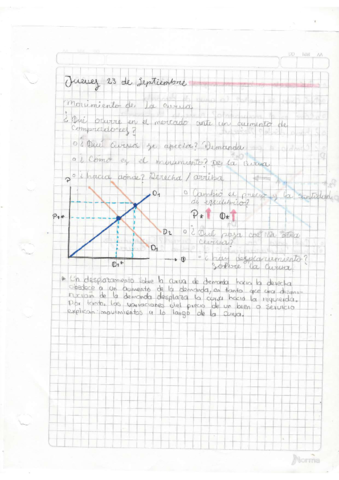 Jueves 23 de Septiembre
Movimientos de la curva
¿Qué ocurre en el mercado ante un aumento de
compradores?
¿Qué curva se afecta? Demanda
¿Cómo es el movimiento? De la curva
¿hacia dónde? Derecha / arriba
P
O1
¿Cambió el precio y la cantidad
de equilibrio?
P* ↑ Q* ↑
P1*
D2
D1
Q1*
Q
¿Qué pasa con la otra
curva?
¿hay desplazamiento?
sobre la curva
Un desplazamiento sobre la curva de demanda hacia la derecha
obedece a un aumento de la demanda, en tanto que una dismi-
nución de la demanda desplaza la curva hacia la izquierda.
Por tanto, las variaciones del precio de un bien o servicio
explican movimientos a lo largo de la curva.